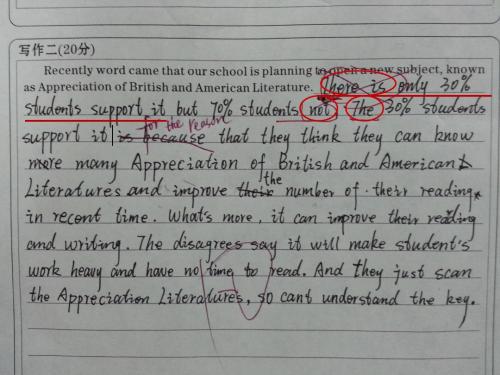 写作二(20分)
Recently word came that our school is planning to open a new subject, known
as Appreciation of British and American Literature. There is only 30%
students support it but 70% students not. The 30% students
for the reason
support it is because that they think they can know
more many Appreciation of British and American
the
Literatures and improve their number of their reading
in recent time. What's more, it can improve their reading
and writing. The disagrees say it will make student's
work heavy and have no time to read. And they just scan
the Appreciation Literatures, so cant understand the key.